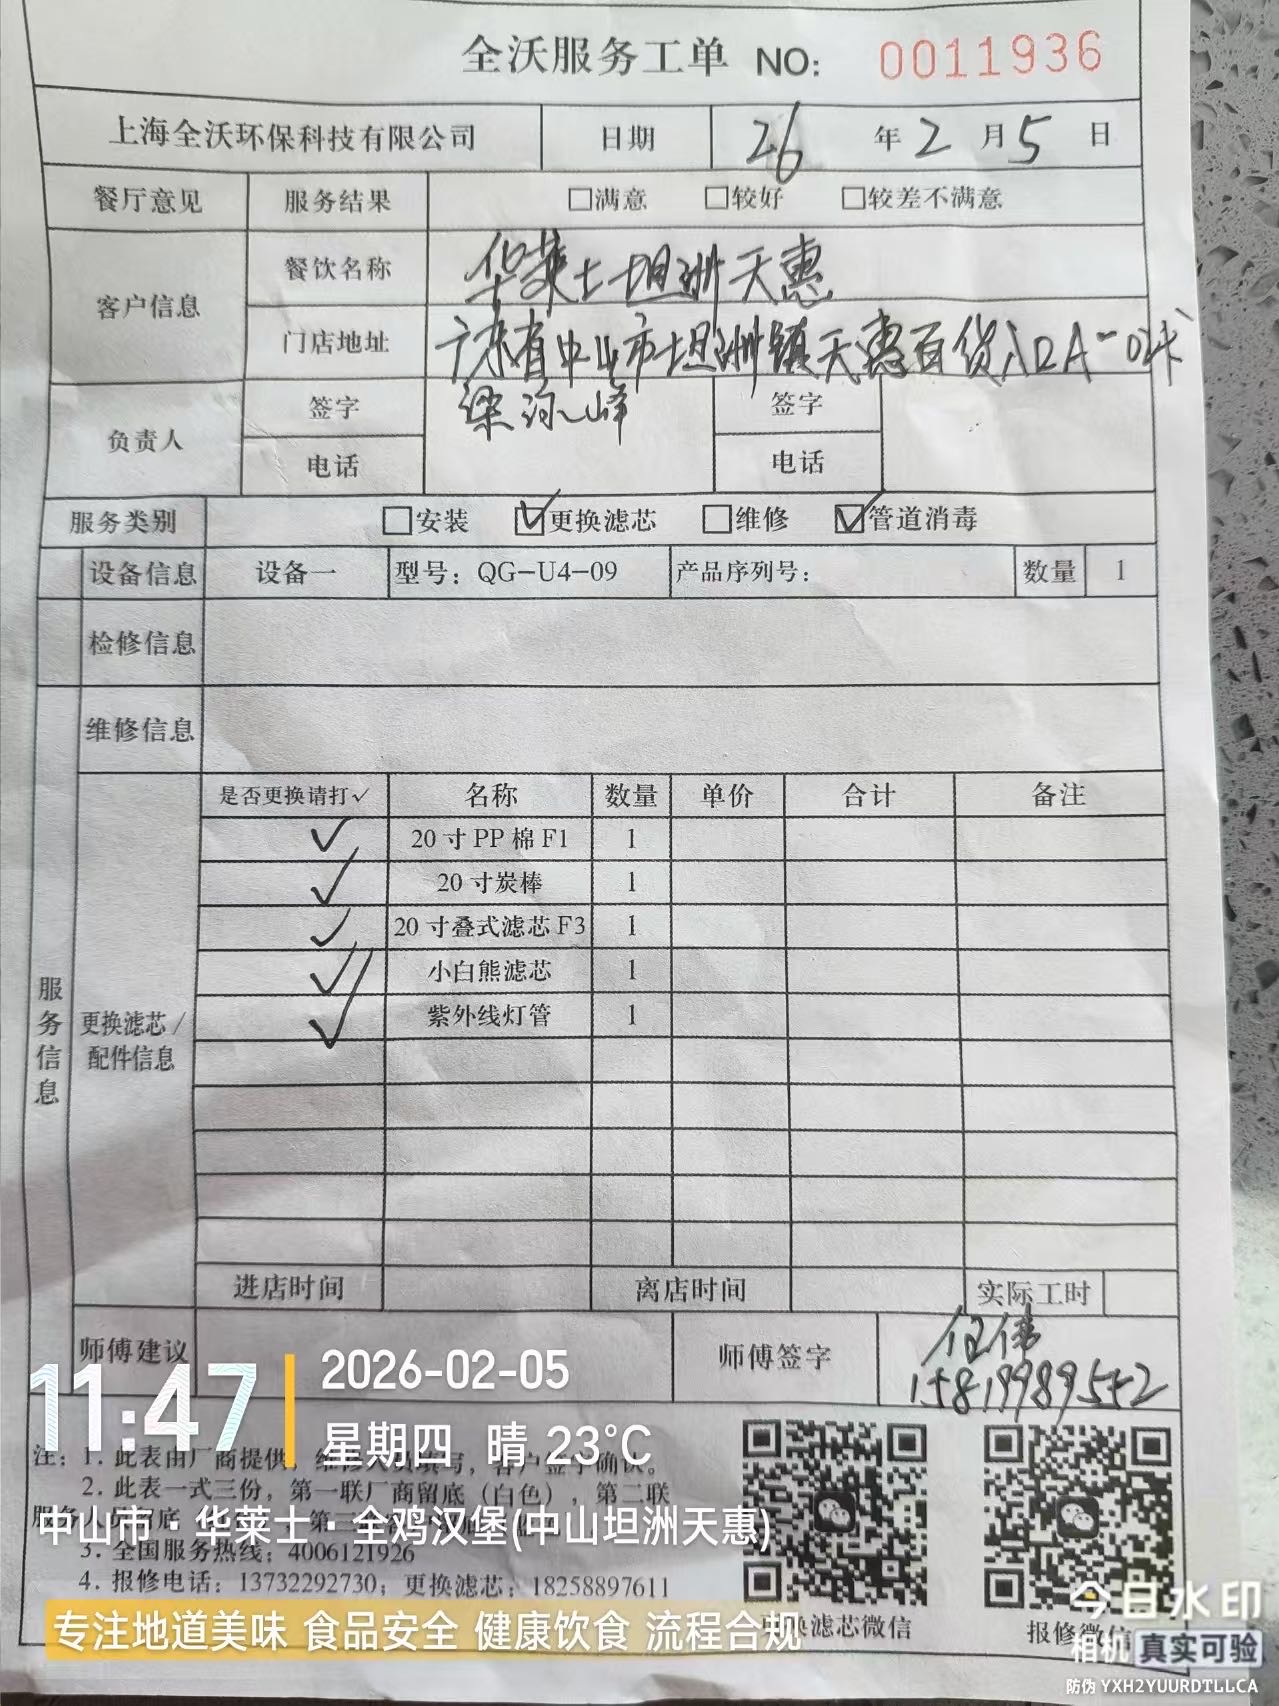 全沃服务工单 NO: 0011936
上海全沃环保科技有限公司 日期 26 年 2 月 5 日
餐厅意见 服务结果 □满意 □较好 □较差不满意
客户信息 餐饮名称 华莱士坦洲天惠
门店地址 广东省中山市坦洲镇天惠百货入口A-02卡
负责人 签字 梁 峰 签字
电话 电话
服务类别 □安装 ☑更换滤芯 □维修 ☑管道消毒
设备信息 设备一 型号: QG-U4-09 产品序列号: 数量 1
检修信息
维修信息
服务信息
更换滤芯/
配件信息
是否更换请打✓ 名称 数量 单价 合计 备注
✓ 20寸PP棉F1 1
✓ 20寸炭棒 1
✓ 20寸叠式滤芯F3 1
✓ 小白熊滤芯 1
✓ 紫外线灯管 1
进店时间 离店时间 实际工时
师傅建议 师傅签字 伟
15819989542
注: 1. 此表由厂商提供,
2. 此表一式三份, 第一联厂商留底(白色), 第二联
3. 全国服务热线; 4006121926
4. 报修电话: 13732292730; 更换滤芯: 18258897611
滤芯微信 报修微信
11:47
2026-02-05
星期四 晴 23°C
中山市·华莱士·全鸡汉堡(中山坦洲天惠)
专注地道美味 食品安全 健康饮食 流程合规
今日水印
相机 真实可验
防伪 YXH2YUURDTLLCA